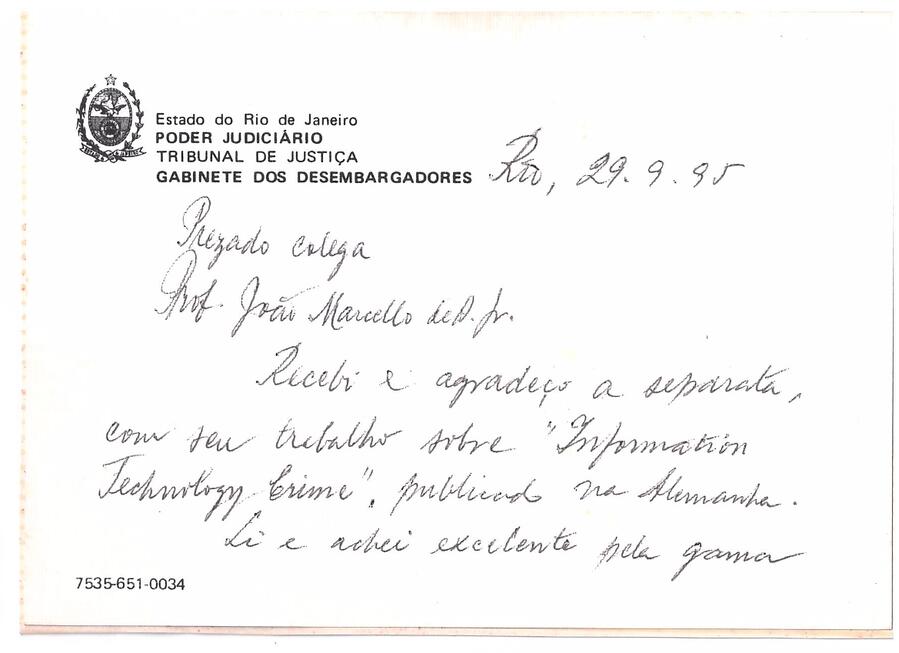 Estado do Rio de Janeiro
PODER JUDICIÁRIO
TRIBUNAL DE JUSTIÇA
GABINETE DOS DESEMBARGADORES
Rio, 29.9.95
Prezado colega
Prof. João Marcello de A. Jr.
Recebi e agradeço a separata,
com seu trabalho sobre "Information
Technology Crime", publicado na Alemanha.
Li e achei excelente pela gama
7535-651-0034